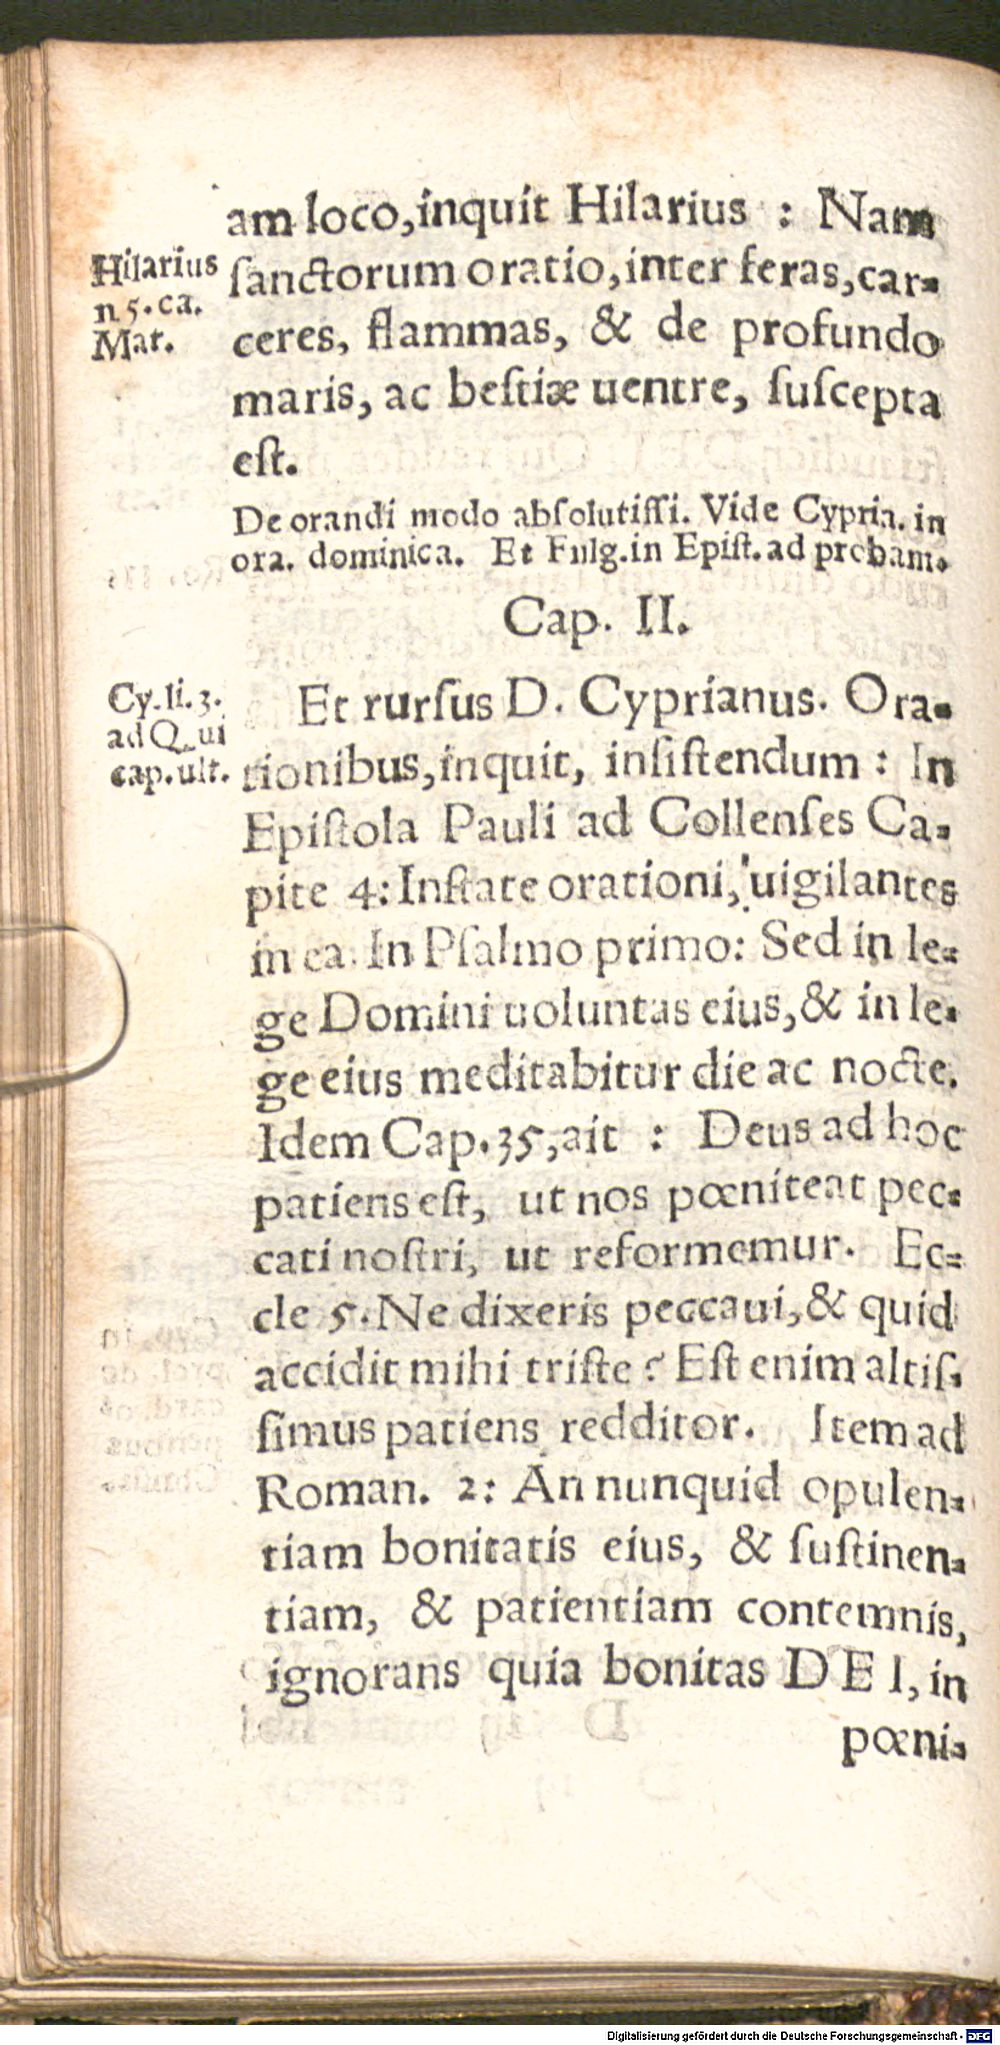 am loco, inquit Hilarius : Nam
Hilarius
n 5. ca.
Mat.
ſanctorum oratio, inter feras, car-
ceres, flammas, & de profundo
maris, ac beſtiæ uentre, ſuſcepta
eſt.
De orandi modo abſolutiſſi. Vide Cypria. in
ora. dominica. Et Fulg. in Epiſt. ad probam.
Cap. II.
Cy. li. 3.
ad Qui
cap. ult.
Et rurſus D. Cyprianus. Ora-
tionibus, inquit, inſiſtendum : In
Epiſtola Pauli ad Collenſes Ca-
pite 4: Inſtate orationi, uigilantes
in ea. In Pſalmo primo: Sed in le-
ge Domini uoluntas eius, & in le-
ge eius meditabitur die ac nocte.
Idem Cap. 35, ait : Deus ad hoc
patiens eſt, ut nos pœniteat pec-
cati noſtri, ut reformemur. Ec-
cle 5. Ne dixeris peccaui, & quid
accidit mihi triſte? Eſt enim altiſ-
ſimus patiens redditor. Item ad
Roman. 2: An nunquid opulen-
tiam bonitatis eius, & ſuſtinen-
tiam, & patientiam contemnis,
ignorans quia bonitas DEI, in
pœni-
Digitalisierung gefördert durch die Deutsche Forschungsgemeinschaft - DFG